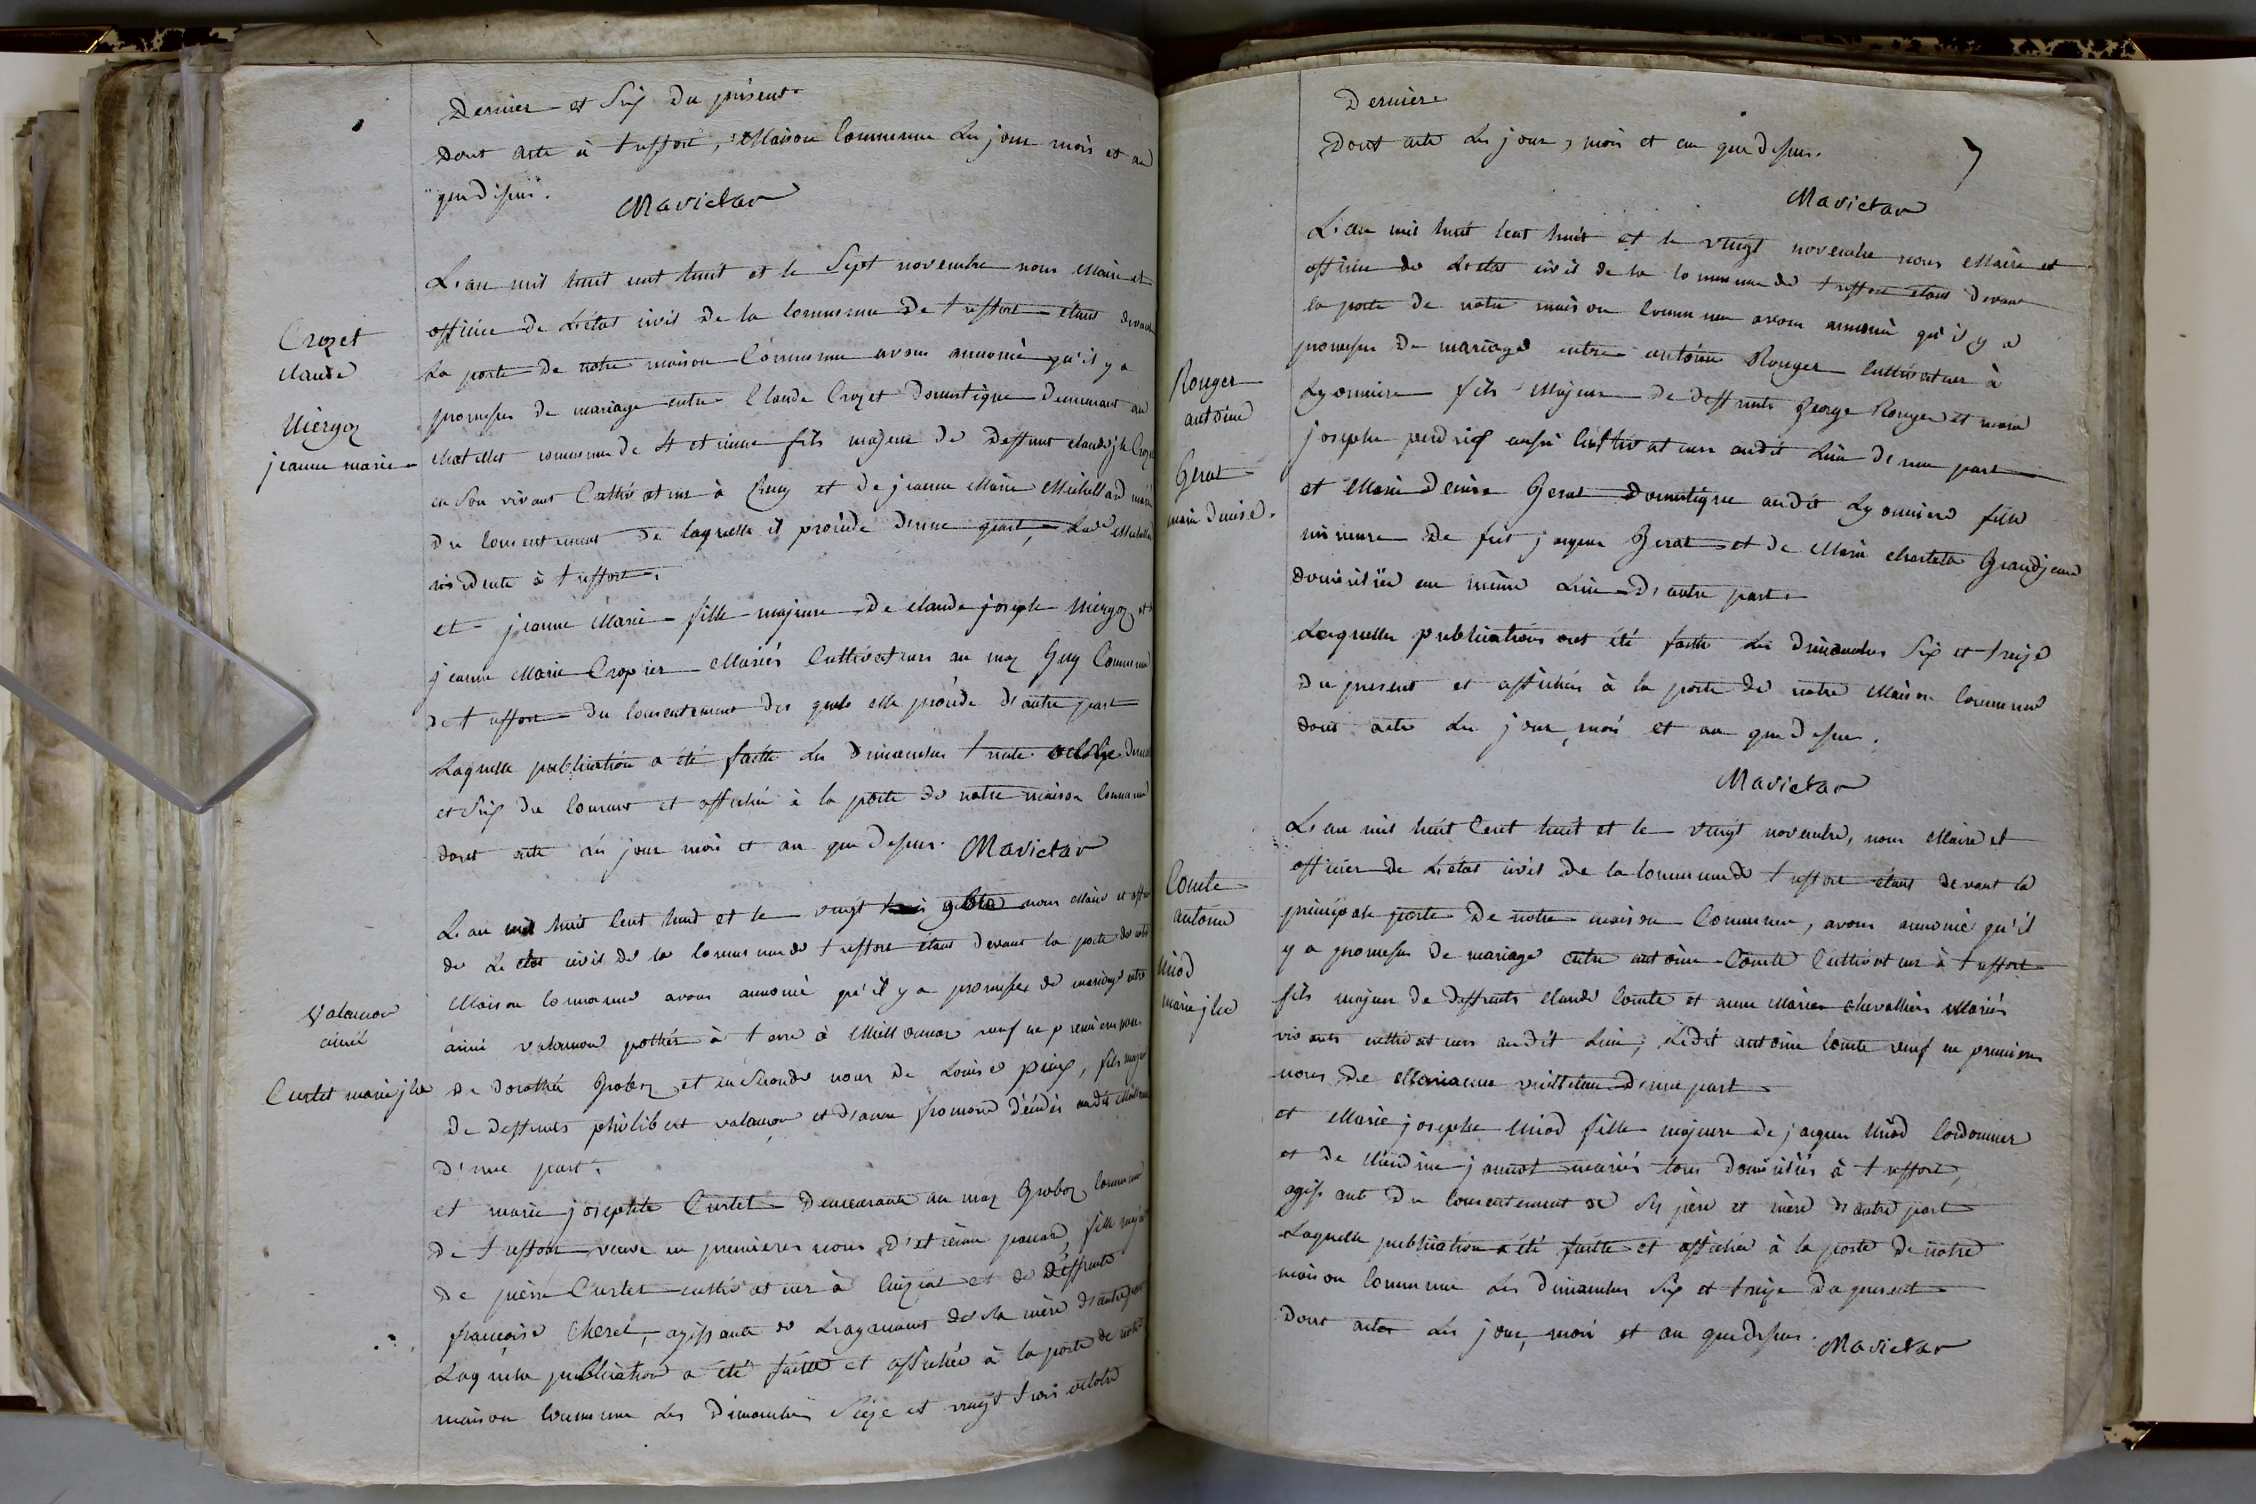 Dernier et Six du présent
Dont acte à treffort, Maison Commune Les jour mois et an
que dessus.
Mavictar
L'an mil huit cent huit et le Sept novembre nous Maire et
officier de L'état civil de la Commune De treffort étant devant
La porte de notre maison Commune avons annoncé qu'il y a
promesses de mariage entre Claude Crozet Domestique Demeurant au
chatellet commune de St etienne fils majeur de Deffunt claude jh Crozet
en son vivant Cultivateur à Cuisy et de jeanne Marie Michellard
Du Consentement De laquelle il procède d'une part, Lade Michellard
résidente à treffort.
et jeanne Marie fille majeure De claude joseph Niergoz et
jeanne Marie Cropier Mariés Cultivateurs au maz Guy Commune
de treffort du Consentement des quels elle procède d'autre part
Laquelle publication a été faitte Les Dimanches trente octobre
et Six du Courant et affichée à la porte de notre maison Commune
dont acte Les jour mois et an que dessus. Mavictar
L'an mil huit Cent huit et le vingt trois nous Maire et officier
de L'etat civil de la Commune de treffort étant Devant la porte de notre
Maison Commune avons annoncé qu'il y a promesses de mariage entre
aimé valancon pottier à terre à Meillonnaz veuf en premières noces
De Dorothée Groboz et en Seconde noces de Louise piroux, fils majeur
De Deffunts philibert valancon et D'anne fromond décédés audit Meillonnaz
D'une part.
et marie josephte Curtet Demeurante au maz Groboz Commune
De treffort veuve en premieres noces D'etienne fille majeure
De pierre Curtet cultivateur à Cuiziat et de Deffunte
françoise Morel, agissante de L'agrement de Sa mère D'autre part
Laquelle publication a été faitte et affichée à la porte de notre
maison Commune Les Dimanches Seize et vingt trois octobre
Crozet
claude
Niergoz
jeanne marie
valancon
aimé
Curtet marie jhe
Dernière
Dont acte Les jour, mois et an que dessus.
7
Mavictar
L'an mil huit Cent huit et le vingt novembre nous Maire et
officier de L'etat civil de la Commune de treffort étant devant
la porte de notre maison Commune avons annoncé qu'il y a
promesses De mariage entre antoine Rouger Cultivateur à
Lyonnière fils Majeur de deffunts George Rouger et marie
josephe perdrix aussi Cultivateurs audit Lieu d'une part
et Marie Denise Gerat Domestique audit Lyonniere fille
mineure De feu jacques Gerat et de Marie charlotte Grandjean
domiciliée au même Lieu D'autre part.
Lesquelles publications ont été faitte Les Dimanches Six et treize
Du present et affichées à la porte de notre Maison Commune
dont acte Les jour, mois et an que dessus.
Mavictar
L'an mil huit Cent huit et le vingt novembre, nous Maire et
officier de L'etat civil De la Commune de treffort étant devant la
principale porte De notre maison Commune, avons annoncé qu'il
y a promesses de mariage entre antoine Comte Cultivateur à treffort
fils majeur de Deffunts claude Comte et anne Marie chevallier Mariés
vivants cultivateurs audit Lieu; Ledit antoine Comte veuf en premieres
noces De Marianne d'une part
et Marie josephe Niod fille majeure De jacques Niod Cordonnier
et de Claudine jannot mariés tous Domiciliés à treffort,
agissant Du Consentement de Ses père et mère D'autre part
Laquelle publication a été faitte et affichée à la porte De notre
maison Commune Les Dimanches Six et treize Du present
Dont acte Les jour, mois et an que dessus. Mavictar
Rouger
antoine
Gerat
marie denise.
Comte
antoine
Niod
marie jhe